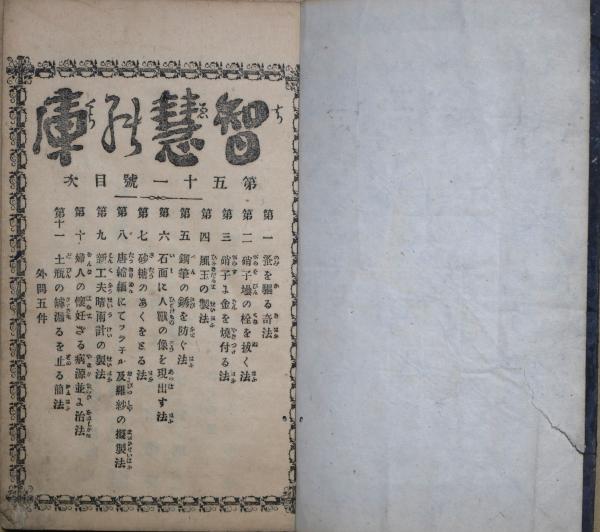 智慧乃庫
第五十一號目次
第一 蚤を驅る奇法
第二 硝子壜の栓を拔く法
第三 硝子よ金を燒付る法
第四 風玉の製法
第五 鋼筆の銹を防ぐ法
第六 石面に人獸の像を現出す法
第七 砂糖のあくをとる法
第八 唐縮緬にてフラネル及羅紗の擬製法
第九 新工夫晴雨計の製法
第十 婦人の懷妊ざる病源並よ治法
第十一 土瓶の罅漏るを止る簡法
外問五件